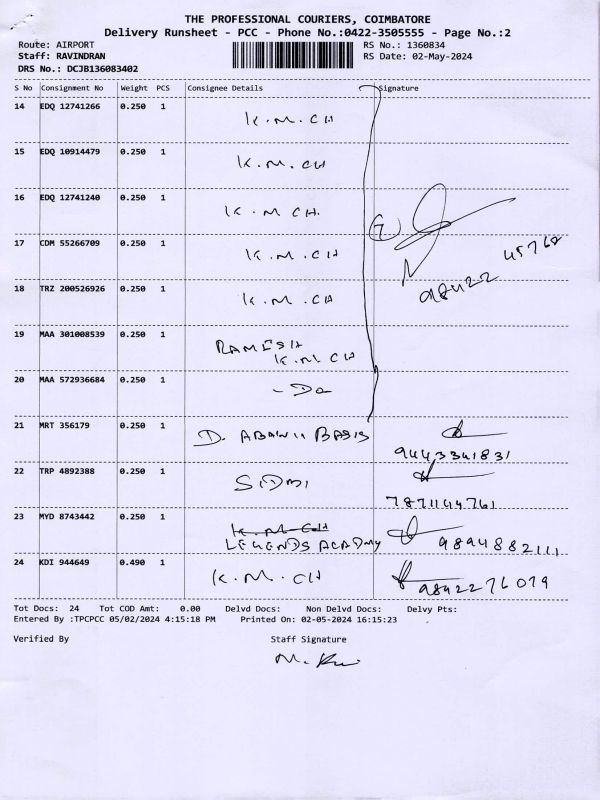 THE PROFESSIONAL COURIERS, COIMBATORE
Delivery Runsheet - PCC - Phone No.:0422-3505555 - Page No.:2
Route: AIRPORT RS No.: 1360834
Staff: RAVINDRAN RS Date: 02-May-2024
DRS No.: DCJB136083402
S No Consignment No Weight PCS Consignee Details Signature
14 EDQ 12741266 0.250 1 K.M.CH
15 EDQ 10914479 0.250 1 K.M.CH
16 EDQ 12741240 0.250 1 K.M CH.
7
17 CDM 55266709 0.250 1 K.M.CH
98422 45768
18 TRZ 200526926 0.250 1 K.M.CH
19 MAA 301008539 0.250 1 RAMESH
K.M.CH
20 MAA 572936684 0.250 1 - Do
21 MRT 356179 0.250 1 D. 9443341831
22 TRP 4892388 0.250 1 SIDBI 7871144761
23 MYD 8743442 0.250 1 K.M.CH
LEGENDS ACADMY 9894882111
24 KDI 944649 0.490 1 K.M.CH 9842276079
Tot Docs: 24 Tot COD Amt: 0.00 Delvd Docs: Non Delvd Docs: Delvy Pts:
Entered By :TPCPCC 05/02/2024 4:15:18 PM Printed On: 02-05-2024 16:15:23
Verified By Staff Signature